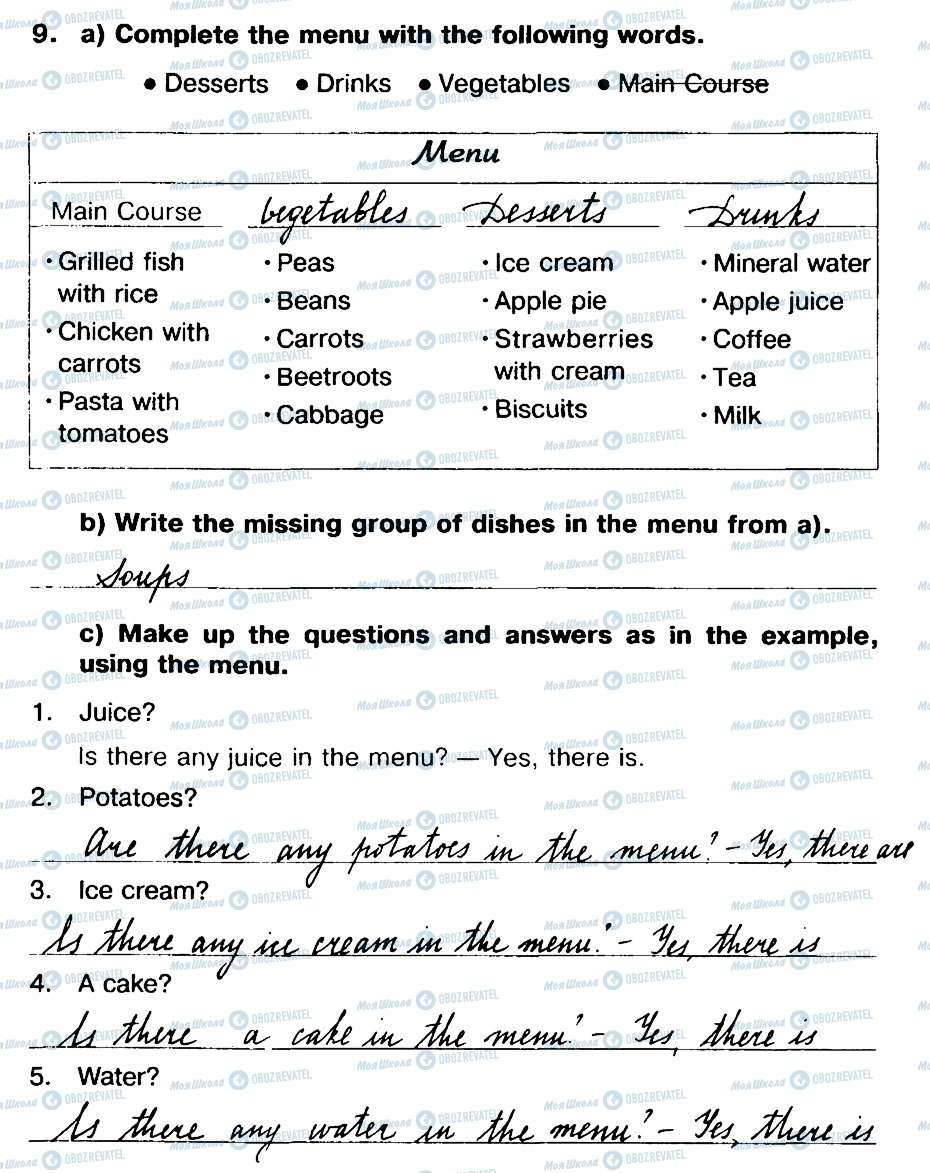 9. a) Complete the menu with the following words.
• Desserts • Drinks • Vegetables • Main Course
Menu
Main Course vegetables Desserts Drinks
· Grilled fish · Peas · Ice cream · Mineral water
with rice · Beans · Apple pie · Apple juice
· Chicken with · Carrots · Strawberries · Coffee
carrots · Beetroots with cream · Tea
· Pasta with · Cabbage · Biscuits · Milk
tomatoes
b) Write the missing group of dishes in the menu from a).
Soups
c) Make up the questions and answers as in the example,
using the menu.
1. Juice?
Is there any juice in the menu? — Yes, there is.
2. Potatoes?
Are there any potatoes in the menu? - Yes, there are
3. Ice cream?
Is there any ice cream in the menu? - Yes, there is
4. A cake?
Is there a cake in the menu? - Yes, there is
5. Water?
Is there any water in the menu? - Yes, there is
Моя Школа OBOZREVATEL